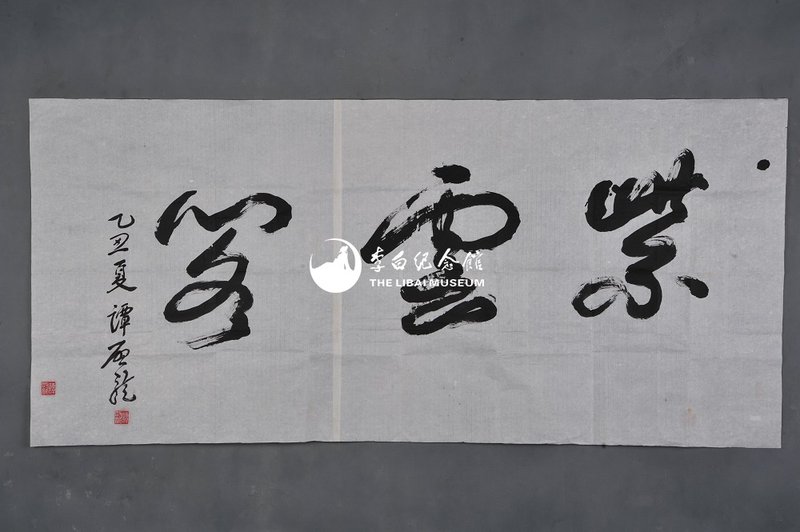 紫雲閣
乙丑夏 譚启龍
李白纪念館
THE LIBAI MUSEUM